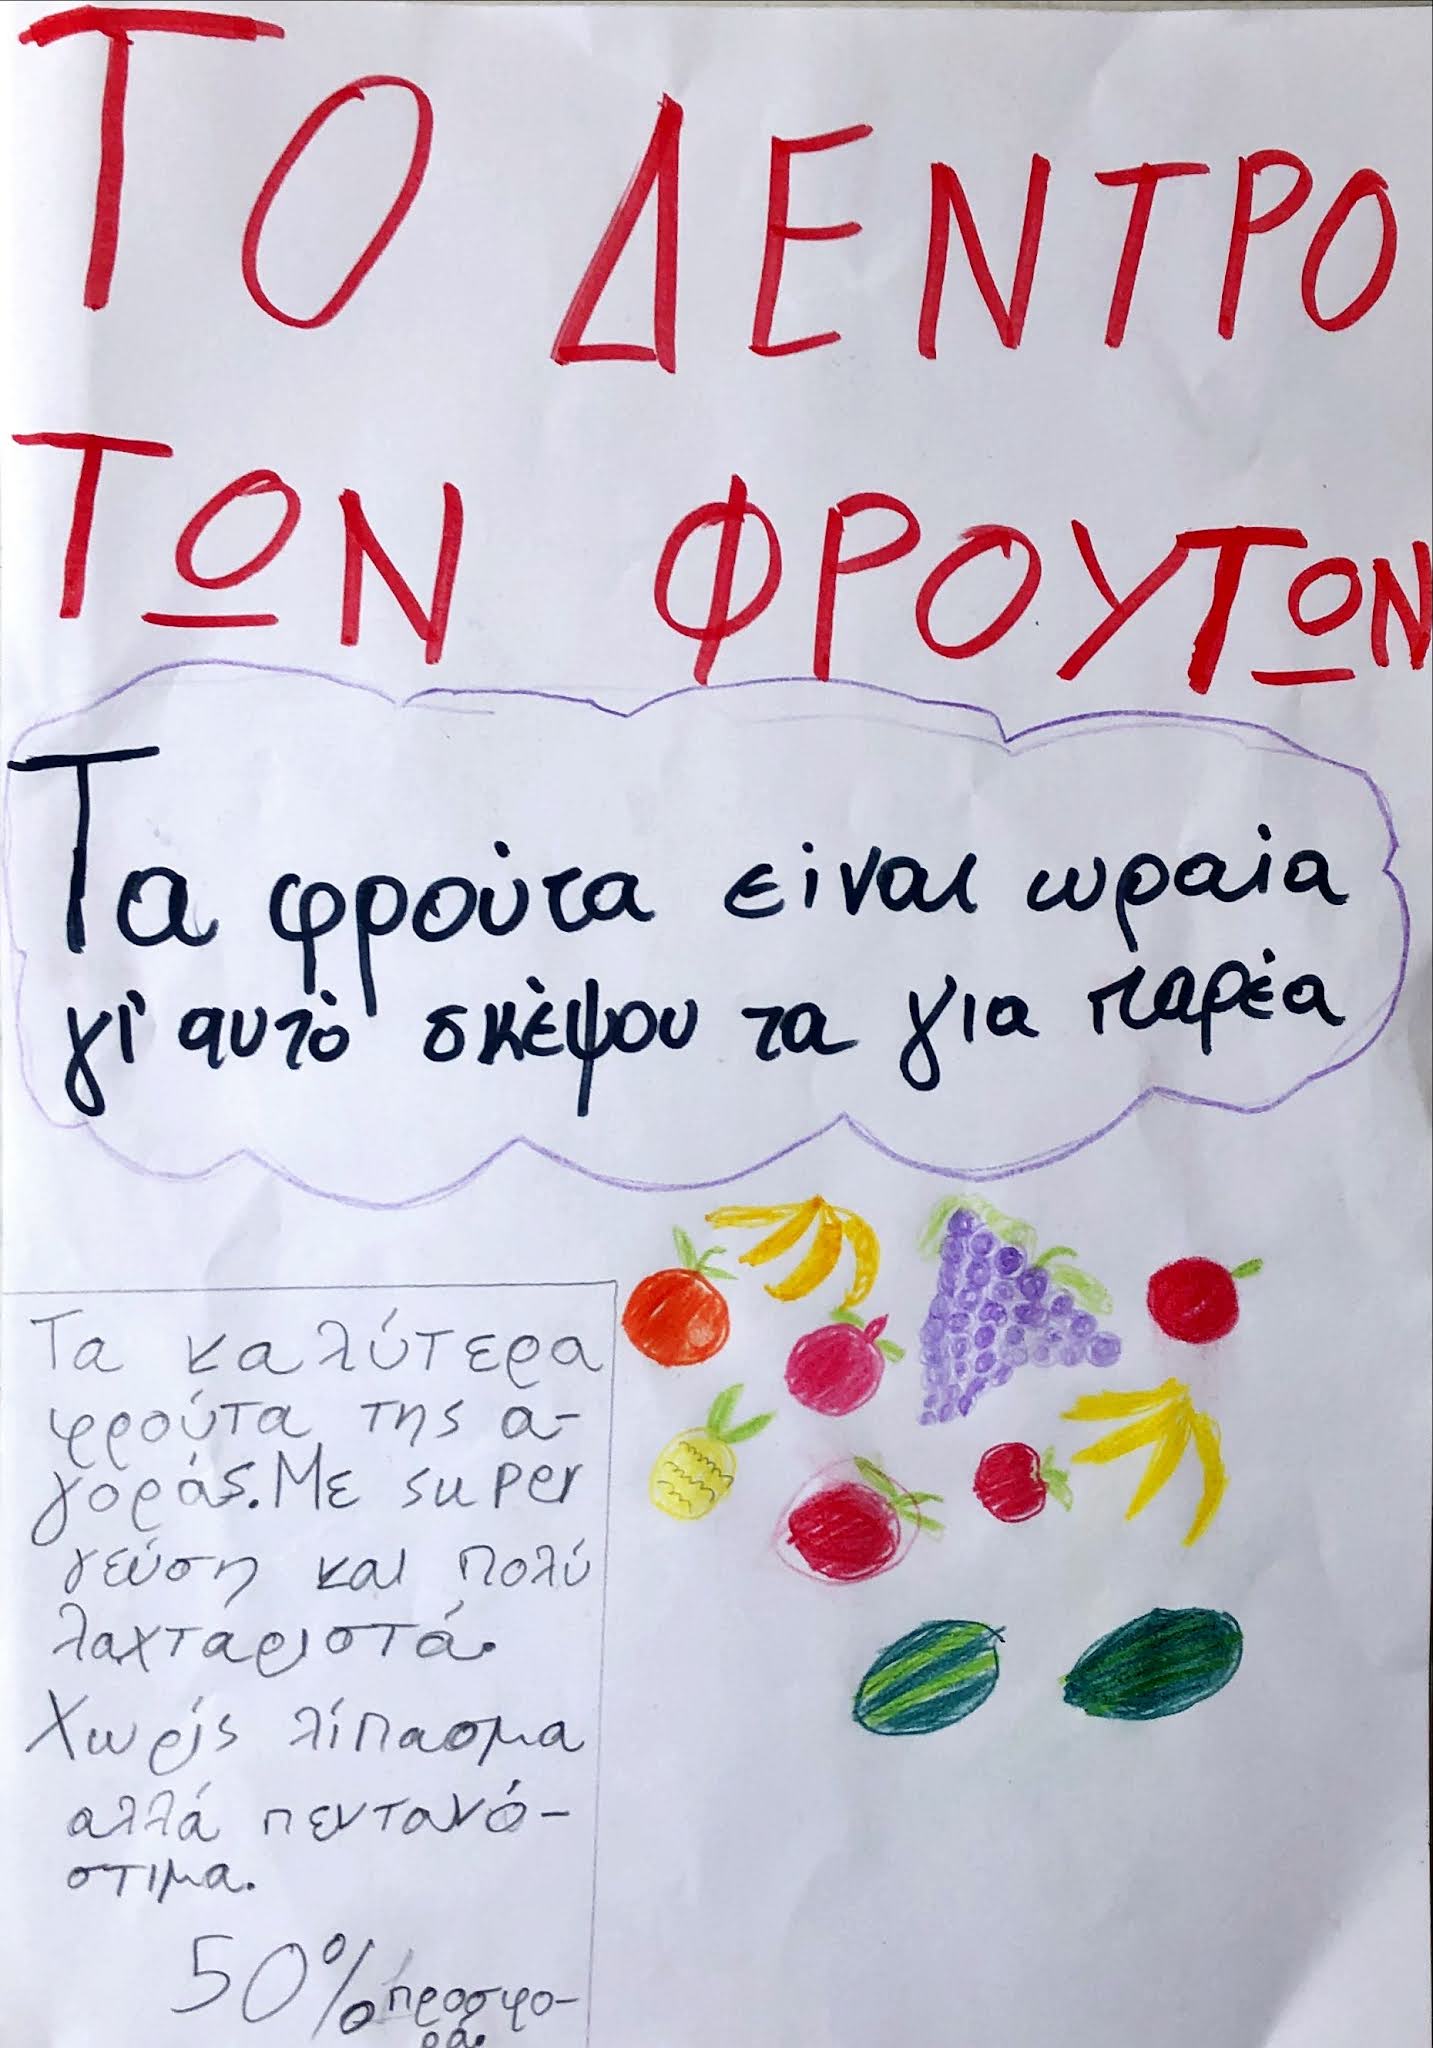 ΤΟ ΔΕΝΤΡΟ
ΤΩΝ ΦΡΟΥΤΩΝ
Τα φρούτα είναι ωραία
γι' αυτό σκέψου τα για παρέα
Τα καλύτερα
φρούτα της α-
γοράς. Με super
γεύση και πολύ
λαχταριστά.
Χωρίς λίπασμα
αλλά πεντανό-
στιμα.
50% προσφο-
ρά.